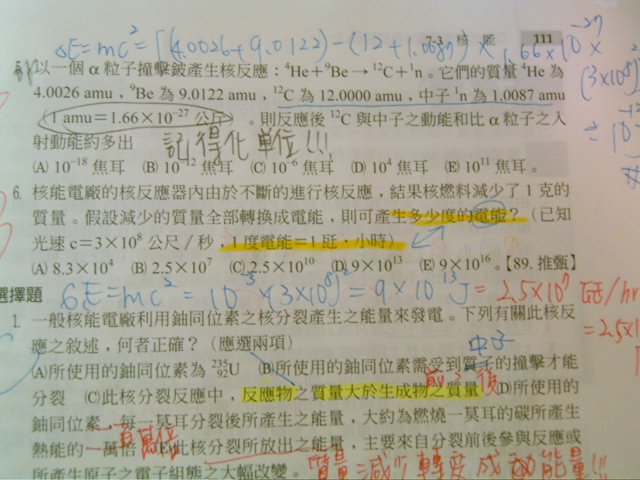 7-3 核 能 111
ΔE=mc²=[(4.0026+9.0122)-(12+1.0087)]×1.66×10⁻²⁷×
(3×10⁸)²
以一個 α 粒子撞擊鈹產生核反應:⁴He+⁹Be→¹²C+¹n。它們的質量 ⁴He 為
4.0026 amu,⁹Be 為 9.0122 amu,¹²C 為 12.0000 amu,中子 ¹n 為 1.0087 amu
(1 amu=1.66×10⁻²⁷ 公斤)。則反應後 ¹²C 與中子之動能和比 α 粒子之入
射動能約多出
記得化單位!!!
(A) 10⁻¹⁸ 焦耳 (B) 10⁻¹² 焦耳 (C) 10⁻⁶ 焦耳 (D) 10⁴ 焦耳 (E) 10¹¹ 焦耳。
6. 核能電廠的核反應器內由於不斷的進行核反應,結果核燃料減少了 1 克的
質量。假設減少的質量全部轉換成電能,則可產生多少度的電能?(已知
光速 c=3×10⁸ 公尺/秒,1 度電能=1 瓩·小時)
(A) 8.3×10⁴ (B) 2.5×10⁷ (C) 2.5×10¹⁰ (D) 9×10¹³ (E) 9×10¹⁶。【89. 推甄】
選擇題
E=mc²=10⁻³×(3×10⁸)²=9×10¹³J=2.5×10⁷
1. 一般核能電廠利用鈾同位素之核分裂產生之能量來發電。下列有關此核反
應之敘述,何者正確?(應選兩項)
中子
(A)所使用的鈾同位素為 ²³⁵U (B)所使用的鈾同位素需受到質子的撞擊才能
分裂 (C)此核分裂反應中,反應物之質量大於生成物之質量 (D)所使用的
鈾同位素,每一莫耳分裂後所產生之能量,大約為燃燒一莫耳的碳所產生
熱能的一萬倍 (E)此核分裂所放出之能量,主要來自分裂前後參與反應或
所產生原子之電子組態之大幅改變。
質量減少轉變成動能量!!!